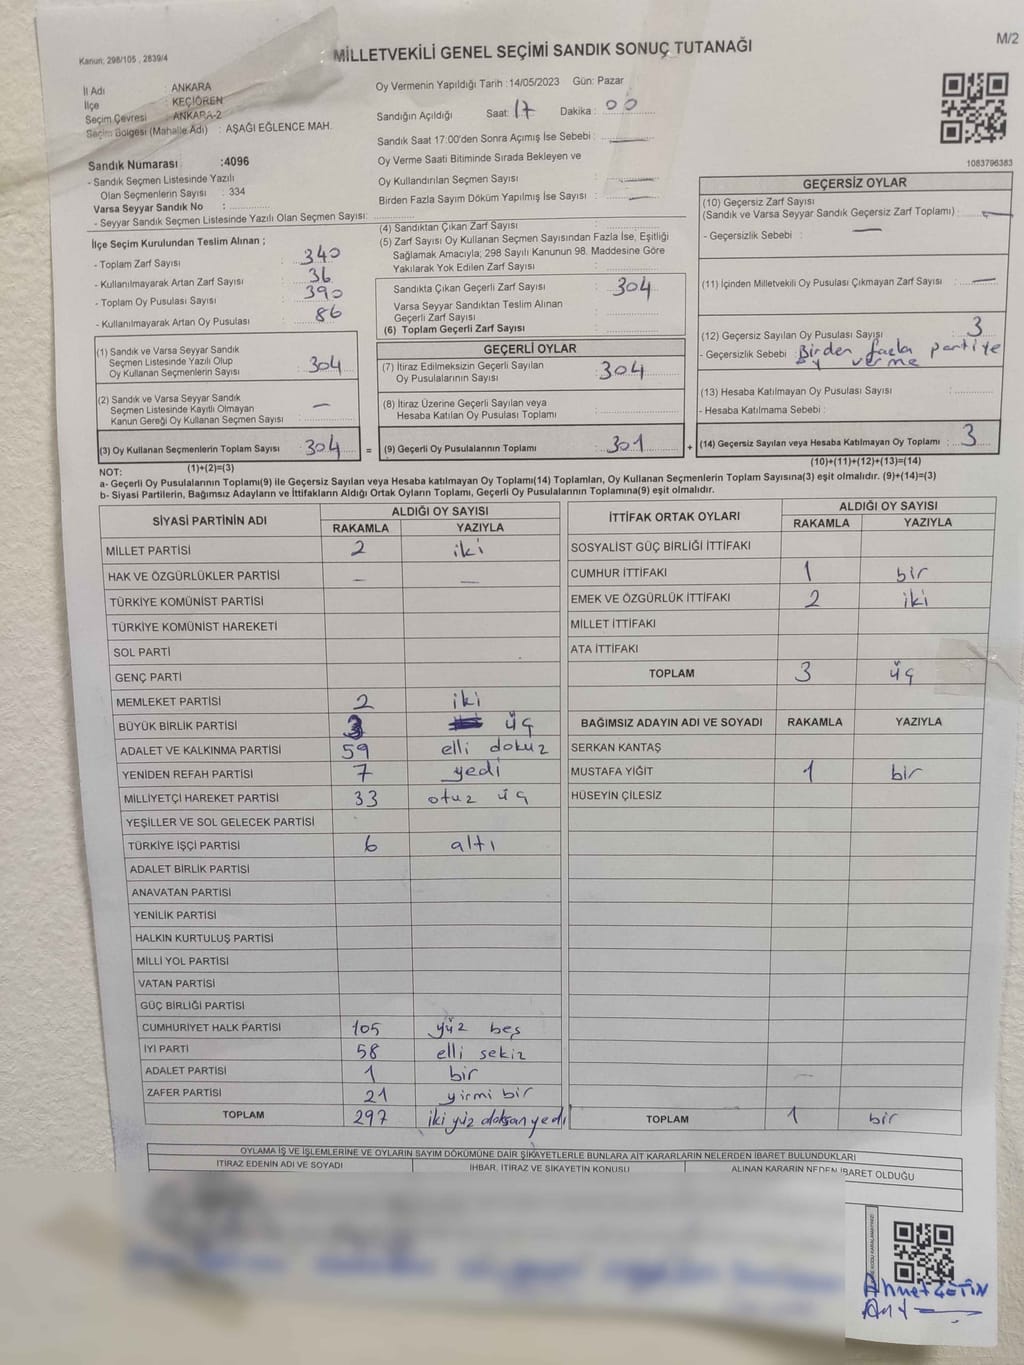 M/2
Kanun: 298/105 , 2839/4
MİLLETVEKİLİ GENEL SEÇİMİ SANDIK SONUÇ TUTANAĞI
İl Adı : ANKARA
İlçe : KEÇİÖREN
Seçim Çevresi : ANKARA-2
Seçim Bölgesi (Mahalle Adı) : AŞAĞI EĞLENCE MAH.
Sandık Numarası :4096
- Sandık Seçmen Listesinde Yazılı
Olan Seçmenlerin Sayısı : 334
Varsa Seyyar Sandık No :
- Seyyar Sandık Seçmen Listesinde Yazılı Olan Seçmen Sayısı:
Oy Vermenin Yapıldığı Tarih :14/05/2023 Gün: Pazar
Sandığın Açıldığı Saat: 17 Dakika : 00
Sandık Saat 17:00'den Sonra Açımış İse Sebebi : —
Oy Verme Saati Bitiminde Sırada Bekleyen ve
Oy Kullandırılan Seçmen Sayısı : —
Birden Fazla Sayım Döküm Yapılmış İse Sayısı : —
1083796383
İlçe Seçim Kurulundan Teslim Alınan ;
- Toplam Zarf Sayısı : 340
- Kullanılmayarak Artan Zarf Sayısı : 36
- Toplam Oy Pusulası Sayısı : 390
- Kullanılmayarak Artan Oy Pusulası : 86
(1) Sandık ve Varsa Seyyar Sandık
Seçmen Listesinde Yazılı Olup
Oy Kullanan Seçmenlerin Sayısı : 304
(2) Sandık ve Varsa Seyyar Sandık
Seçmen Listesinde Kayıtlı Olmayan
Kanun Gereği Oy Kullanan Seçmen Sayısı : —
(3) Oy Kullanan Seçmenlerin Toplam Sayısı : 304 =
(1)+(2)=(3)
(4) Sandıktan Çıkan Zarf Sayısı :
(5) Zarf Sayısı Oy Kullanan Seçmen Sayısından Fazla İse, Eşitliği
Sağlamak Amacıyla; 298 Sayılı Kanunun 98. Maddesine Göre
Yakılarak Yok Edilen Zarf Sayısı :
Sandıkta Çıkan Geçerli Zarf Sayısı : 304
Varsa Seyyar Sandıktan Teslim Alınan
Geçerli Zarf Sayısı :
(6) Toplam Geçerli Zarf Sayısı :
GEÇERLİ OYLAR
(7) İtiraz Edilmeksizin Geçerli Sayılan
Oy Pusulalarının Sayısı : 304
(8) İtiraz Üzerine Geçerli Sayılan veya
Hesaba Katılan Oy Pusulası Toplamı :
(9) Geçerli Oy Pusulalarının Toplamı : 301 +
GEÇERSİZ OYLAR
(10) Geçersiz Zarf Sayısı
(Sandık ve Varsa Seyyar Sandık Geçersiz Zarf Toplamı) : —
- Geçersizlik Sebebi : —
(11) İçinden Milletvekili Oy Pusulası Çıkmayan Zarf Sayısı : —
(12) Geçersiz Sayılan Oy Pusulası Sayısı : 3
- Geçersizlik Sebebi : Birden fazla partiye
oy verme
(13) Hesaba Katılmayan Oy Pusulası Sayısı :
- Hesaba Katılmama Sebebi :
(14) Geçersiz Sayılan veya Hesaba Katılmayan Oy Toplamı : 3
(10)+(11)+(12)+(13)=(14)
NOT:
a- Geçerli Oy Pusulalarının Toplamı(9) ile Geçersiz Sayılan veya Hesaba katılmayan Oy Toplamı(14) Toplamları, Oy Kullanan Seçmenlerin Toplam Sayısına(3) eşit olmalıdır. (9)+(14)=(3)
b- Siyasi Partilerin, Bağımsız Adayların ve İttifakların Aldığı Ortak Oyların Toplamı, Geçerli Oy Pusulalarının Toplamına(9) eşit olmalıdır.
SİYASİ PARTİNİN ADI ALDIĞI OY SAYISI
RAKAMLA YAZIYLA
MİLLET PARTİSİ 2 iki
HAK VE ÖZGÜRLÜKLER PARTİSİ — —
TÜRKİYE KOMÜNİST PARTİSİ
TÜRKİYE KOMÜNİST HAREKETİ
SOL PARTİ
GENÇ PARTİ
MEMLEKET PARTİSİ 2 iki
BÜYÜK BİRLİK PARTİSİ 3 üç
ADALET VE KALKINMA PARTİSİ 59 elli dokuz
YENİDEN REFAH PARTİSİ 7 yedi
MİLLİYETÇİ HAREKET PARTİSİ 33 otuz üç
YEŞİLLER VE SOL GELECEK PARTİSİ
TÜRKİYE İŞÇİ PARTİSİ 6 altı
ADALET BİRLİK PARTİSİ
ANAVATAN PARTİSİ
YENİLİK PARTİSİ
HALKIN KURTULUŞ PARTİSİ
MİLLİ YOL PARTİSİ
VATAN PARTİSİ
GÜÇ BİRLİĞİ PARTİSİ
CUMHURİYET HALK PARTİSİ 105 yüz beş
İYİ PARTİ 58 elli sekiz
ADALET PARTİSİ 1 bir
ZAFER PARTİSİ 21 yirmi bir
TOPLAM 297 iki yüz doksan yedi
İTTİFAK ORTAK OYLARI ALDIĞI OY SAYISI
RAKAMLA YAZIYLA
SOSYALİST GÜÇ BİRLİĞİ İTTİFAKI
CUMHUR İTTİFAKI 1 bir
EMEK VE ÖZGÜRLÜK İTTİFAKI 2 iki
MİLLET İTTİFAKI
ATA İTTİFAKI
TOPLAM 3 üç
BAĞIMSIZ ADAYIN ADI VE SOYADI RAKAMLA YAZIYLA
SERKAN KANTAŞ
MUSTAFA YİĞİT 1 bir
HÜSEYİN ÇİLESİZ
TOPLAM 1 bir
OYLAMA İŞ VE İŞLEMLERİNE VE OYLARIN SAYIM DÖKÜMÜNE DAİR ŞİKAYETLERLE BUNLARA AİT KARARLARIN NELERDEN İBARET BULUNDUKLARI
İTİRAZ EDENİN ADI VE SOYADI İHBAR, İTİRAZ VE ŞİKAYETİN KONUSU ALINAN KARARIN NEDEN İBARET OLDUĞU
Ahmet ÇETİN